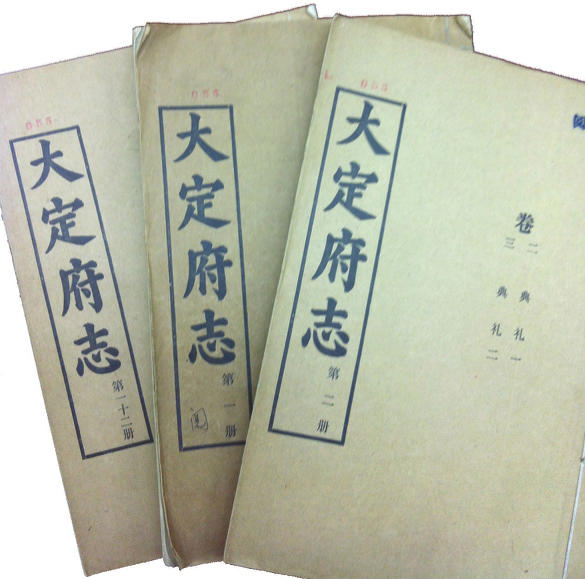 大定府志
第一十二册
大定府志
第一册
大定府志
第二册
卷
二 典礼一
三 典礼二